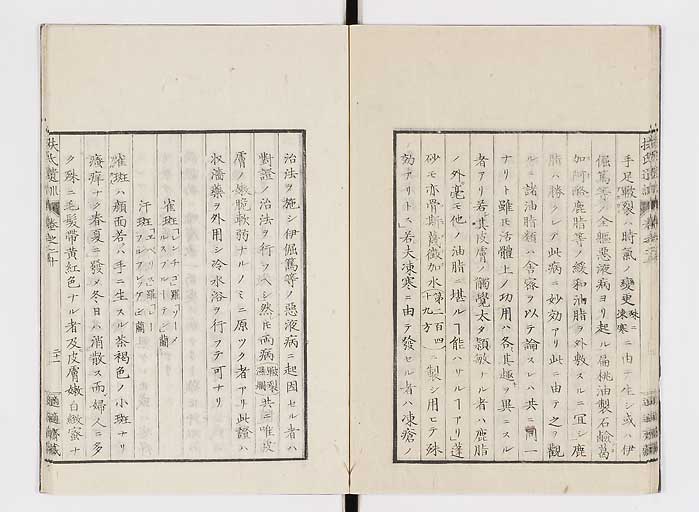 手足皸裂ハ時氣ノ變更殊ニ凍寒ニ由テ生シ或ハ伊
倔篤等ノ全軀惡液病ヨリ起ル扁桃油製石鹸葛
加阿酪鹿脂等ノ緩和油脂ヲ外敷スルニ宜シ鹿
脂ハ勝レテ此病ニ妙効アリ此ニ由テ之ヲ觀
ルニ諸油脂類ハ舎密ヲ以テ論スレハ共ニ同一
ナリト雖モ活體上ノ功用ハ各其趣ヲ異ニスル
者アリ若其皮膚ノ觸覺太タ穎敏ナル者ハ鹿脂
ノ外毫モ他ノ油脂ニ堪ルヿ能ハサルヿアリ蓬
砂モ亦 加水第二百四十九方ニ製シ用ヒテ殊
効アリトス若夫凍寒ニ由テ發セル者ハ凍瘡ノ
治法ヲ施シ伊倔篤等ノ惡液病ニ起因セル者ハ
對證ノ治法ヲ行フヘシ然モ両病皸裂凍瘡共ニ唯皮
膚ノ嫩脆軟弱ナルノミニ原ツク者アリ此證ハ
收濇藥ヲ外用シ冷水浴ヲ行フテ可ナリ
雀斑
汗斑
雀斑ハ顏面若ハ手ニ生スル茶褐色ノ小斑ナリ
疼痒ナク春夏ニ發メ冬日ハ消散ス而婦人ニ多
ク殊ニ毛髮帶黃紅色ナル者及皮膚嫩白緻蜜ナ
扶氏遺訓 卷之二十
二十一
適適齋藏